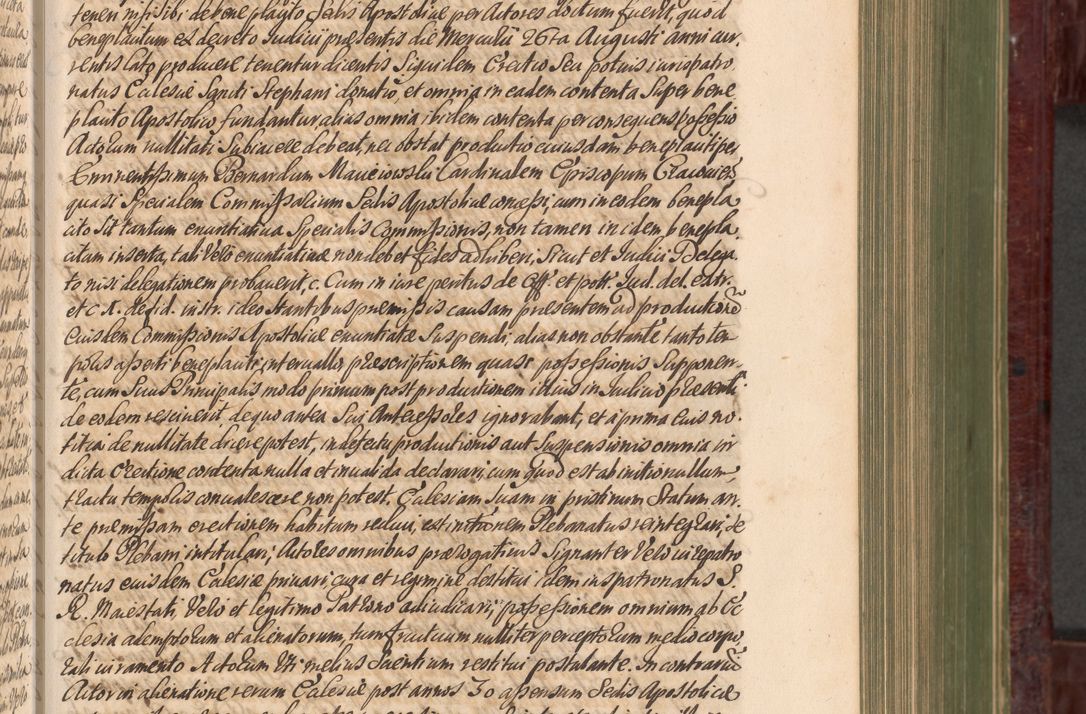 teneri nisi sibi de beneplacito Sedis Apostolicae per Actores doctum fuerit, quod
beneplacitum ex decreto Iudicii praesentis die Mercurii 26ta Augusti anni cur,
rentis lato producere tenentur dicentis Siquidem Erectio Seu potius iurispatro
natus Eclesiae Sancti Stephani donatio, et omnia in eadem contenta Super bene
placito Apostolico fundantur, alias omnia ibidem contenta per consequens possessio
Actorum nullitati Subiacere debeat, nec obstat productio cuiusdam beneplaciti per
Eminentissimum Bernardum Macieiowski Cardinalem Episcopum Cracovien
quasi Specialem Commissarium Sedis Apostolicae concessi, cum in eodem benepla
cito Sit tantum enuntiativa Specialis Commissionis, non tamen in idem benepla,
citum inserta, tali vero enuntiativae non debet fides adhiberi, Sicut et Iudici Delega
to nisi delegationem probaverit, c. Cum in iure peritus de Off. et pott. Iud. del. extr.
et c. 1. de fid. instr. ideo stantibus praemissis causam praesentem ad productionem
Eiusdem Commissionis Apostolicae enuntiatae Suspendi, alias non obstante tanto tem
poris asserti beneplaciti intervallo, praescriptionem quasi possessionis Supponen,
te, cum Suus Principalis modo primum post productionem illius in Iudicio praesenti
de eodem resciverit, de quo antea Sui Antecessores ignorabant, et a prima Eius no,
titia de nullitate dicere potest, in defectu productionis aut Suspensionis omnia in
dicta Erectione contenta nulla et invalida declarari, cum quod est ab initio nullum,
tractu temporis convalescere non potest. Eclesiam Suam in pristinum Statum an,
te praemissam erectionem habitum reduci, est in honorem Plebanatus reintegrari, Se
titulo Plebani intitulari, Actores omnibus praerogativis Signanter Vero iurepatro
natus eiusdem Eclesiae privari, cura et regimine destitui, idem ius patronatus S.
R. Maiestati, Vero et legitimo Patrono adiudicari, possessionem omnium ab Ec
clesia ademptorum et alienatorum, tum fructuum nulliter perceptorum medio corpo
rali iuramento Actorum uti melius Scientium restitui postulante. In contrarium
Actor in alienatione rerum Eclesiae post annos 30 assensum Sedis Apostolicae